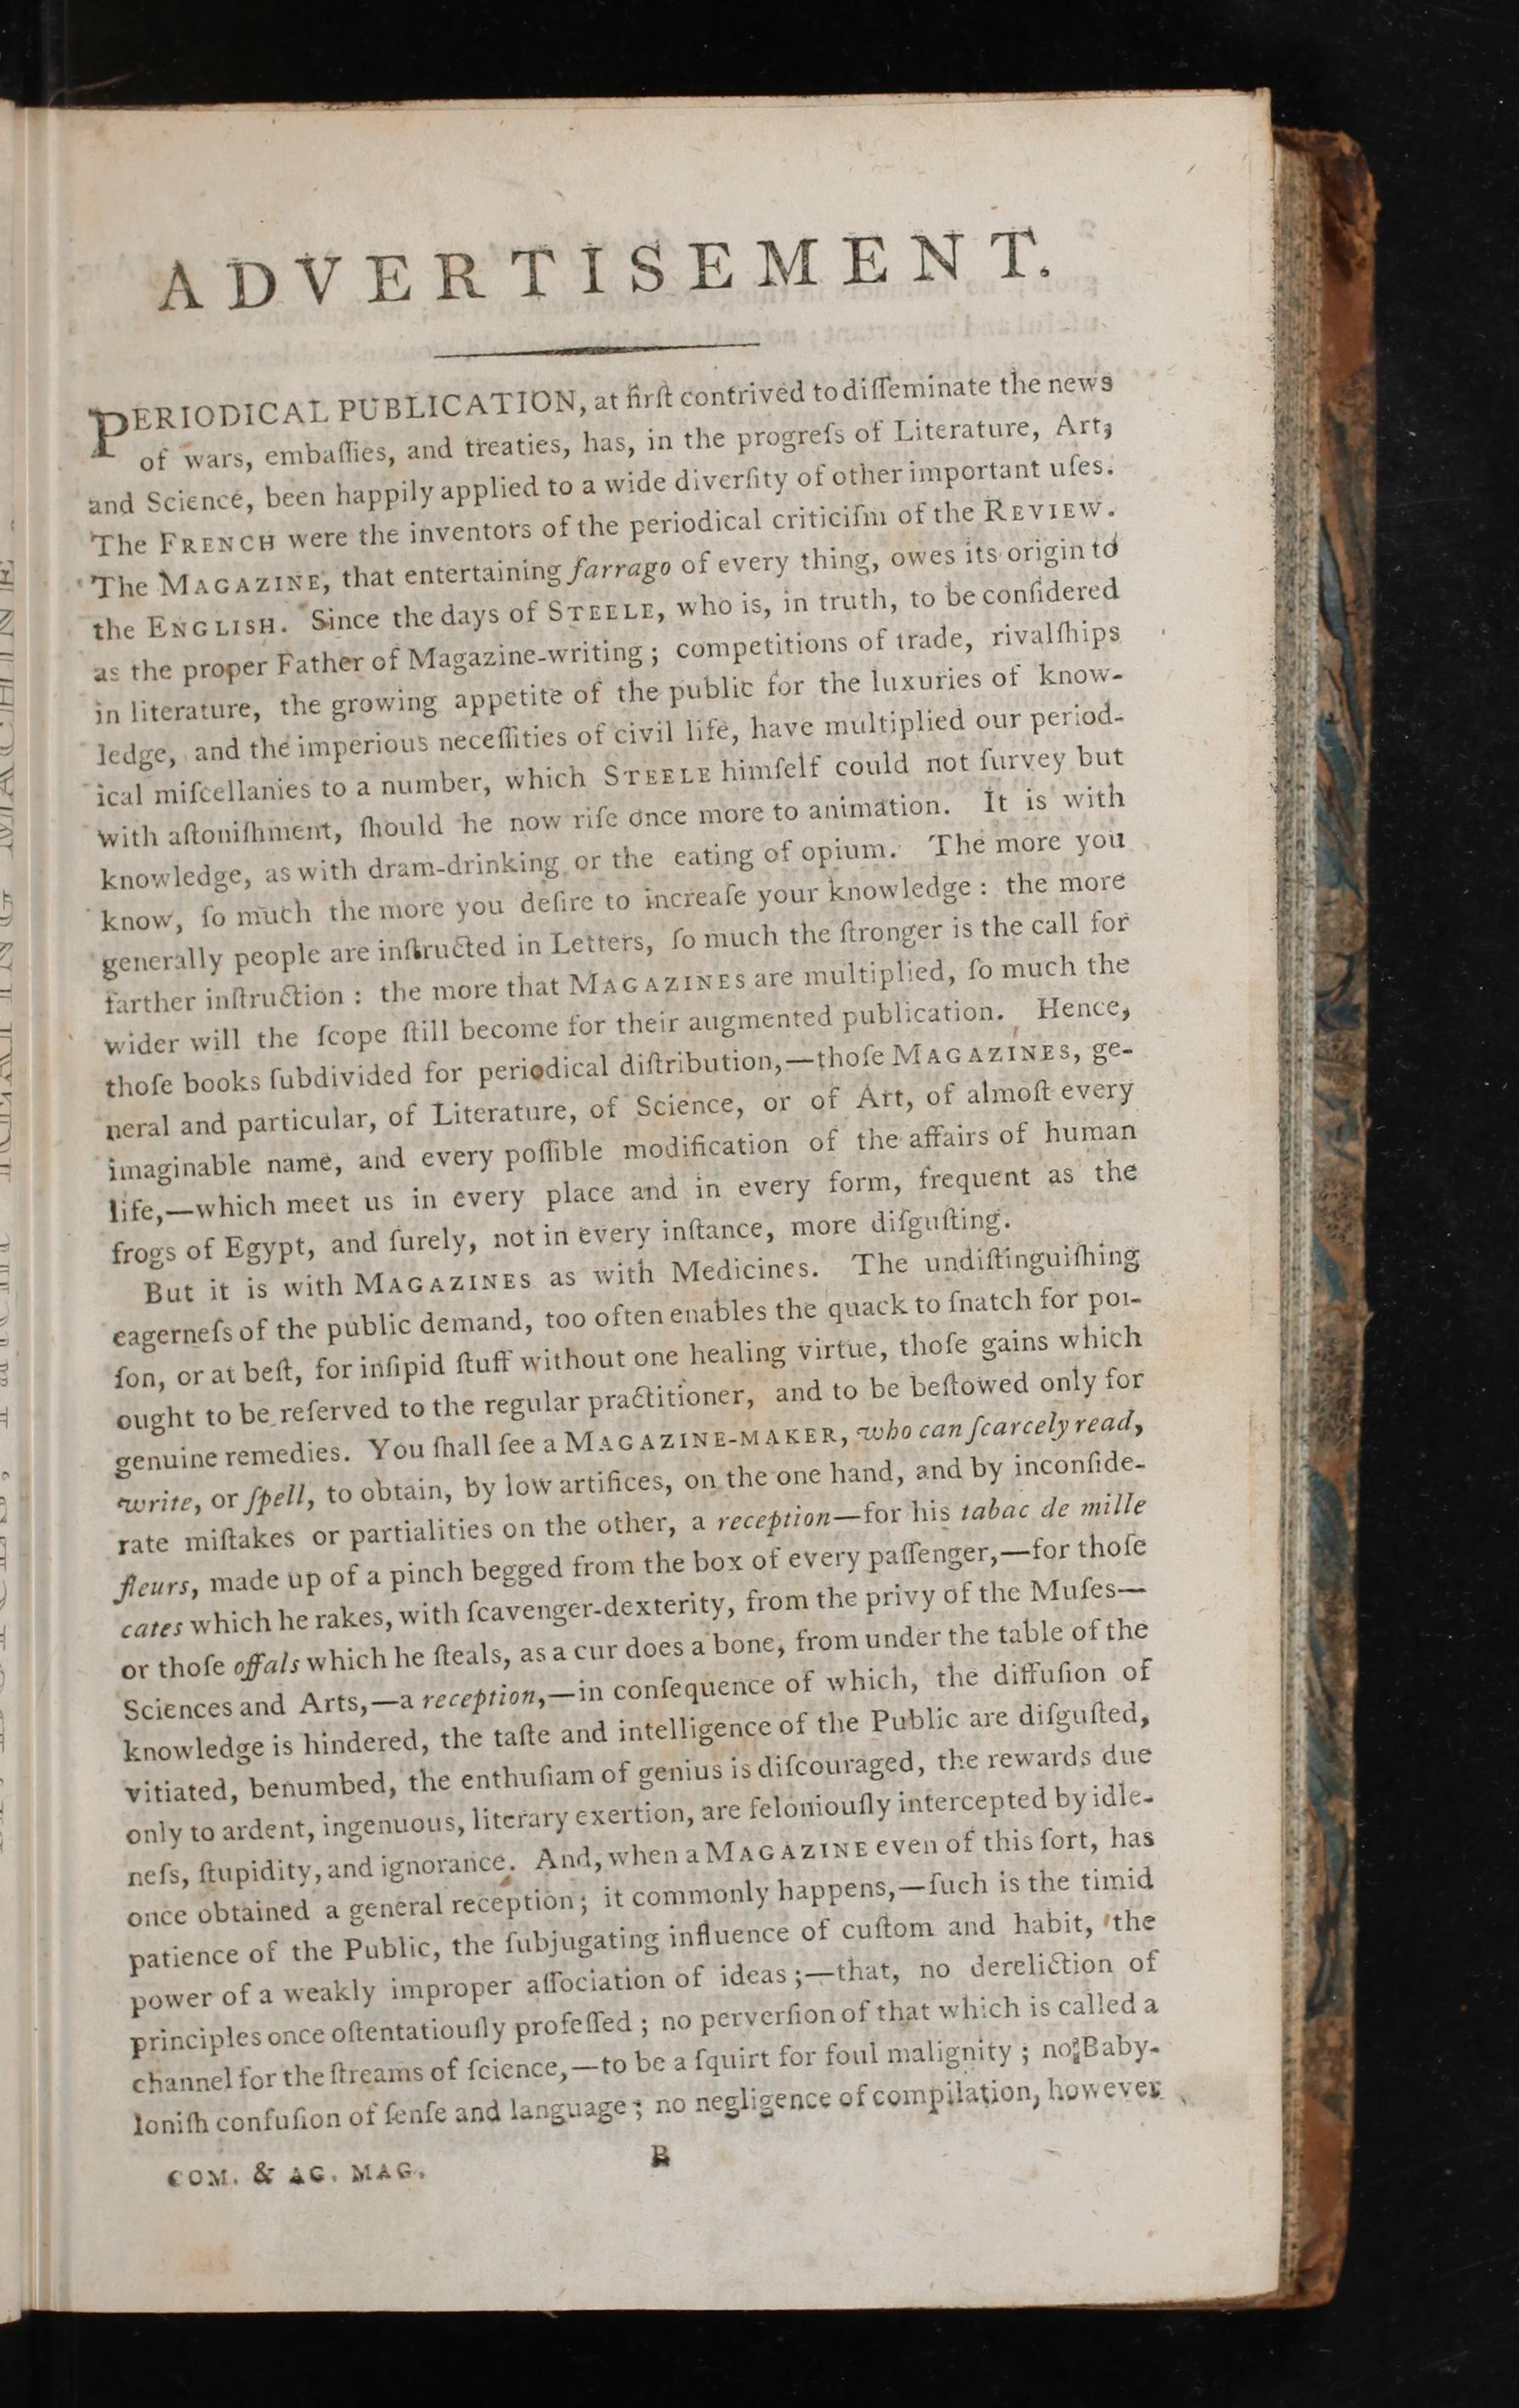 ADVERTISEMENT.
PERIODICAL PUBLICATION, at firſt contrived to diſſeminate the news
of wars, embaſſies, and treaties, has, in the progreſs of Literature, Art,
and Science, been happily applied to a wide diverſity of other important uſes.
The FRENCH were the inventors of the periodical criticiſm of the REVIEW.
The MAGAZINE, that entertaining farrago of every thing, owes its origin to
the ENGLISH. Since the days of STEELE, who is, in truth, to be conſidered
as the proper Father of Magazine-writing; competitions of trade, rivalſhips
in literature, the growing appetite of the public for the luxuries of know-
ledge, and the imperious neceſſities of civil life, have multiplied our period-
ical miſcellanies to a number, which STEELE himſelf could not ſurvey but
with aſtoniſhment, ſhould he now riſe once more to animation. It is with
knowledge, as with dram-drinking or the eating of opium. The more you
know, ſo much the more you deſire to increaſe your knowledge: the more
generally people are inſtructed in Letters, ſo much the ſtronger is the call for
farther inſtruction: the more that MAGAZINES are multiplied, ſo much the
wider will the ſcope ſtill become for their augmented publication. Hence,
thoſe books ſubdivided for periodical diſtribution,—thoſe MAGAZINES, ge-
neral and particular, of Literature, of Science, or of Art, of almoſt every
imaginable name, and every poſſible modification of the affairs of human
life,—which meet us in every place and in every form, frequent as the
frogs of Egypt, and ſurely, not in every inſtance, more diſguſting.
But it is with MAGAZINES as with Medicines. The undiſtinguiſhing
eagerneſs of the public demand, too often enables the quack to ſnatch for poi-
ſon, or at beſt, for inſipid ſtuff without one healing virtue, thoſe gains which
ought to be reſerved to the regular practitioner, and to be beſtowed only for
genuine remedies. You ſhall ſee a MAGAZINE-MAKER, who can ſcarcely read,
write, or ſpell, to obtain, by low artifices, on the one hand, and by inconſide-
rate miſtakes or partialities on the other, a reception—for his tabac de mille
fleurs, made up of a pinch begged from the box of every paſſenger,—for thoſe
cates which he rakes, with ſcavenger-dexterity, from the privy of the Muſes—
or thoſe offals which he ſteals, as a cur does a bone, from under the table of the
Sciences and Arts,—a reception,—in conſequence of which, the diffuſion of
knowledge is hindered, the taſte and intelligence of the Public are diſguſted,
vitiated, benumbed, the enthuſiam of genius is diſcouraged, the rewards due
only to ardent, ingenuous, literary exertion, are feloniouſly intercepted by idle-
neſs, ſtupidity, and ignorance. And, when a MAGAZINE even of this ſort, has
once obtained a general reception; it commonly happens,—ſuch is the timid
patience of the Public, the ſubjugating influence of cuſtom and habit, the
power of a weakly improper aſſociation of ideas;—that, no dereliction of
principles once oſtentatiouſly profeſſed; no perverſion of that which is called a
channel for the ſtreams of ſcience,—to be a ſquirt for foul malignity; no Baby-
loniſh confuſion of ſenſe and language; no negligence of compilation, however
COM. & AG. MAG. B